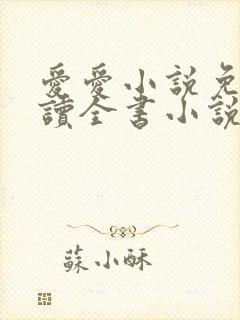 愛愛小說免
讀全書小說
蘇小酥